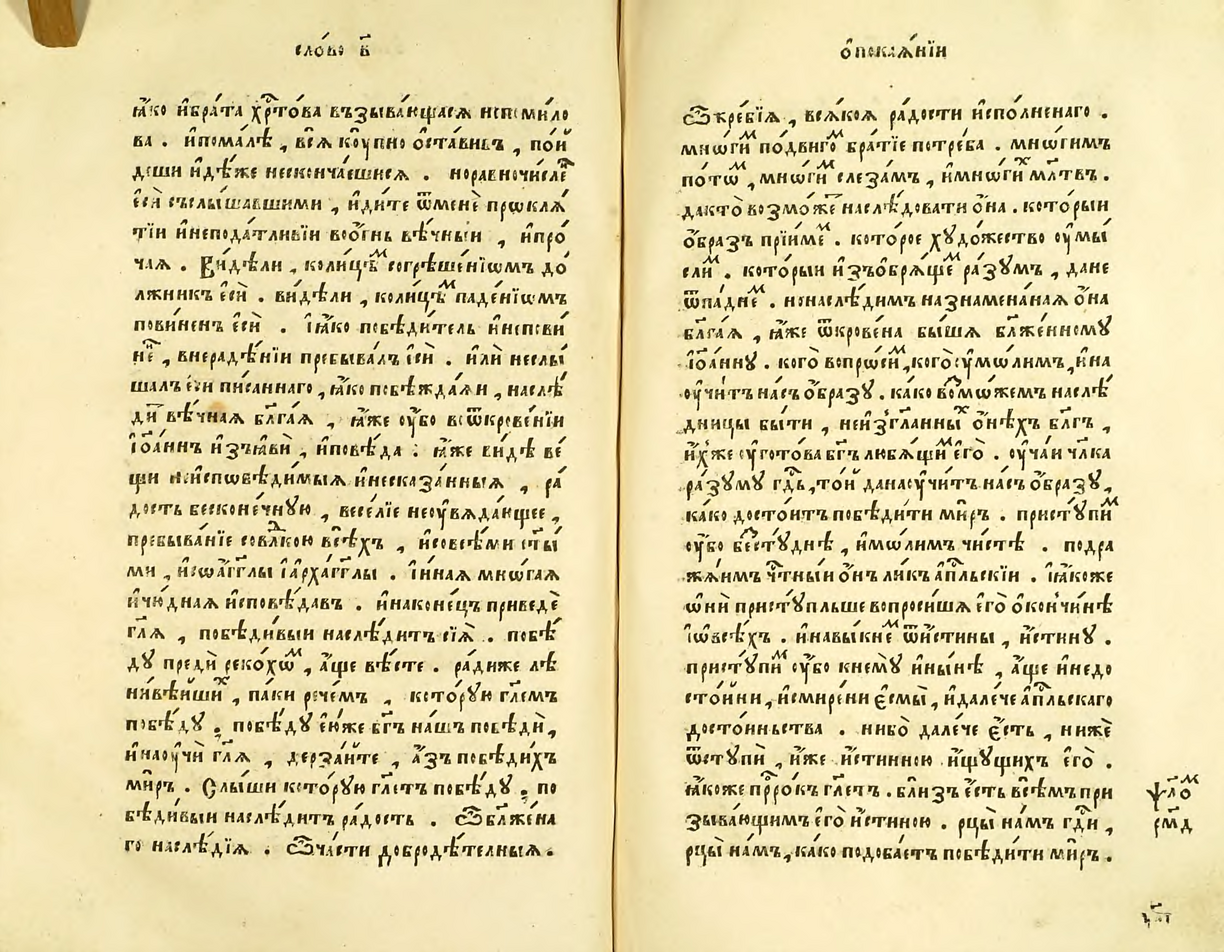 сло́во в҃
ꙗ҆́ко и҆бра́та хрⷭ҇то́ва въꙁыва́ющаеѧ неп смило
ва . и҆пома́лѣ , всѧ̀ кꙋ́пно ѡ҆ста́вивъ , пои҆́
деши и҆дѣ́же нескончаешисѧ . норавночи́сле
есѝ съслы́шавшими , и҆ди́те ѿменѐ прѡ́клѧ
тїи и҆непода́тливїи вѻ҆́гнь вѣ́чныи , и҆про́
чаѧ . Ви́дѣли , коли́цѣⷨ согрѣше́нїѡмъ до
лжникъ е҆сѝ . ви́дѣли , коли́цѣⷨ паде́нїѡмъ
пови́ненъ е҆сѝ . І҆ꙗ́ко побѣди́тель и҆непови́
не , внераде́нїи пребыва́лъ е҆сѝ . и҆лѝ неслы́
шалъ еси писаннаго , ꙗ҆́ко побѣжда́ѧи , наслѣ́
ди вѣ́чнаѧ бл҃га́ѧ , ꙗ҆́же ᲂу҆́бо всѿкрове́нїи
і҆ѡа́ннъ и҆ꙁъꙗвѝ , и҆повѣ́да : ꙗ҆́же ви́дѣ ве́
щи неи҆спѡвѣди́мыѧ и҆несказа́нныѧ , ра́
дость бесконе́чнꙋю , весе́лїе неᲂу҆вѧда́ющее ,
пребыва́нїе совлⷣкою всѣ́хъ , и҆совсѣ́ми ст҃ы́
ми , и҆сѡа҆́гг҃лы і҆а҆рха́гг҃лы . і҆и҆на́ѧ мнѡ́гаѧ
и҆чю́днаѧ и҆сповѣ́давъ . и҆наконе́цъ приведѐ
гл҃ѧ , побѣди́выи наслѣ́дитъ сїѧ̀ . побѣ́
дꙋ предѝ реко́хѡⷨ , а҆́ще вѣ́сте . ра́диже лѣ
ни́вѣишиⷯ , па́ки рече́мъ , кото́рꙋю гл҃емъ
побѣ́дꙋ , побѣ́дꙋ е҆ю́же бг҃ъ на́шъ побѣдѝ ,
и҆наᲂу҆чѝ гл҃ѧ , дерза́ите , а҆́зъ побѣди́хъ
ми́ръ . Слы́ши кото́рꙋю гл҃етъ побѣ́дꙋ , по
бѣди́выи наслѣ́дитъ ра́дость . Ѿбл҃же́на
го наслѣ́дїѧ . Ѿча́сти добродѣ́телныѧ .
ѻ҆покаѧ́нїи
Ѿкре́бїѧ , всѧ́коѧ ра́дости и҆спо́лненаго .
мнѡ́гиⷨ по́двигоⷨ бра́тїе потре́ба . мнѡ́гимъ
по́тѡⷨ , мнѡ́гиⷨ слеза́мъ , и҆мнѡ́гиⷯ мл҃твъ .
дакто̀ возмо́же наслѣ́довати ѻ҆на . кото́рыи
ѻ҆́бразъ прїи́меⷨ . кото́рое хꙋдо́жество ᲂу҆мы́
слиⷨ . кото́рыи и҆зъѻбрѧ́щеⷨ ра́зꙋмъ , дане
ѿпадне́ⷨ . нонаслѣ́димъ назнамена́наѧ ѻ҆на
бл҃га́ѧ , ꙗ҆́же ѿкрове́на бы́шѧ бл҃же́нномꙋ
і҆ѡа́ннꙋ . кого̀ вопро́сиⷨ , кого̀ ᲂу҆мо́лимъ , и҆на
ᲂу҆чи́тъ на́съ ѻ҆́бразꙋ . ка́ко вомо́жемъ наслѣ́
дницы бы́ти , неи҆зг҃ланныⷯ ѻ҆нѣ́хъ бл҃гъ ,
и҆́хже ᲂу҆гото́ва бг҃ъ лю́бѧщиⷨ е҆го̀ . ᲂу҆ча́и чл҃ка
ра́зꙋмꙋ гдⷭ҇ь , то́и данаᲂу҆чи́тъ на́съ ѻ҆́бразꙋ ,
ка́ко досто́итъ побѣди́ти ми́ръ . пристꙋпиⷨ
ᲂу҆́бо бестꙋ́днѣ , и҆мо́лимъ чи́стѣ . подра
жа́имъ чⷭ҇тны́и ѻ҆́нъ ли́къ а҆пⷭ҇льскїи . І҆ꙗ́коже
ѡ҆нѝ пристꙋ́пльше вопроси́шѧ е҆го̀ ѻ҆кончи́нѣ
і҆ѡ҆всѣ́хъ . и҆навы́кнеⷨ ѿи҆́стины , и҆́стинꙋ .
пристꙋ́пиⷨ ᲂу҆́бо кнемꙋ̀ и҆ны́нѣ , а҆́ще и҆недо
сто́йни , и҆смире́ни є҆смы̀ , и҆дале́че а҆пⷭ҇льскаго
досто́иньства . ни́бо дале́че є҆́сть , нижѐ
ѿстꙋпѝ , и҆́же и҆́стинною и҆́щꙋщихъ е҆го̀ .
ꙗ҆́коже прⷪ҇ро́къ гл҃етъ . бли́зъ є҆́сть всѣ́мъ при
зыва́ющимъ е҆го̀ и҆́стиною . рцы̀ на́мъ гдⷭ҇и ,
рцы̀ на́мъ , ка́ко подоба́етъ побѣди́ти ми́ръ .
ѱало́ⷨ
рмд